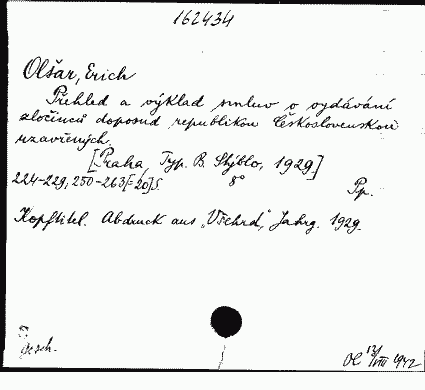 162434
Olšar, Erich
Přehled a výklad smluv o vydávání
zločinců doposud republikou Československou
uzavřených.
[Praha, Typ. B. Stýblo, 1929.]
224-229; 250-263[=20]S. 8° Pp.
Kopftitel. Abdruck aus "Všehrd", Jahrg. 1929.
Gesch. 1942